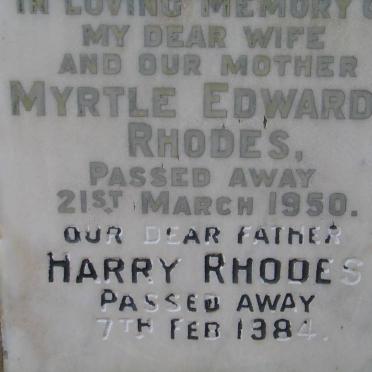 IN LOVING MEMORY O
MY DEAR WIFE
AND OUR MOTHER
MYRTLE EDWARD
RHODES,
PASSED AWAY
21ST MARCH 1950.
OUR DEAR FATHER
HARRY RHODES
PASSED AWAY
7TH FEB 1984.